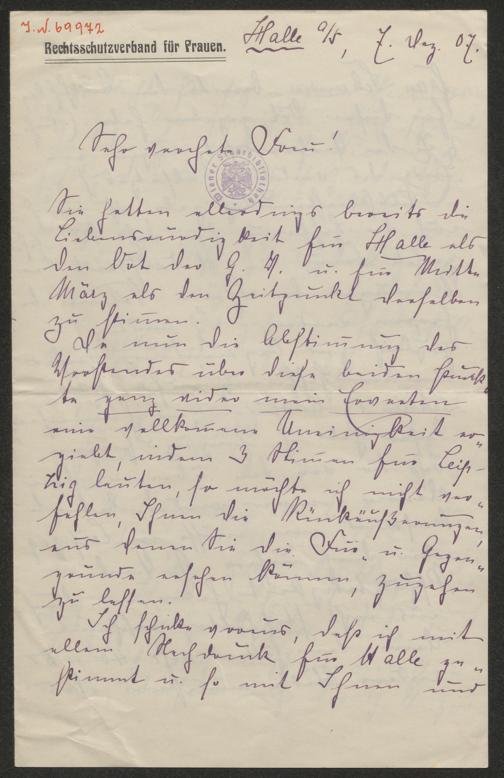 I.N. 69972
Rechtsschutzverband für Frauen.
Halle a/S, 7. Dez. 07.
Sehr verehrte Frau!
Wiener Stadtbibliothek
Sie hatten allerdings bereits die
Liebenswürdigkeit für Halle als
den Ort der G. V. u. für Mitte
März als den Zeitpunkt derselben
zu stimmen.
Da nun die Abstimmung des
Vorstandes über diese beiden Punk-
te ganz wider mein Erwarten
eine vollkommene Uneinigkeit er-
giebt, indem 3 Stimmen für Leip-
zig lauten, so möchte ich nicht ver-
fehlen, Ihnen die Rückäußerungen,
aus denen Sie die Für- u. Gegen-
gründe ersehen können, zugehen
zu lassen.
Ich schicke voraus, daß ich mit
allem Nachdruck für Halle ge-
stimmt u. so mit Ihnen und